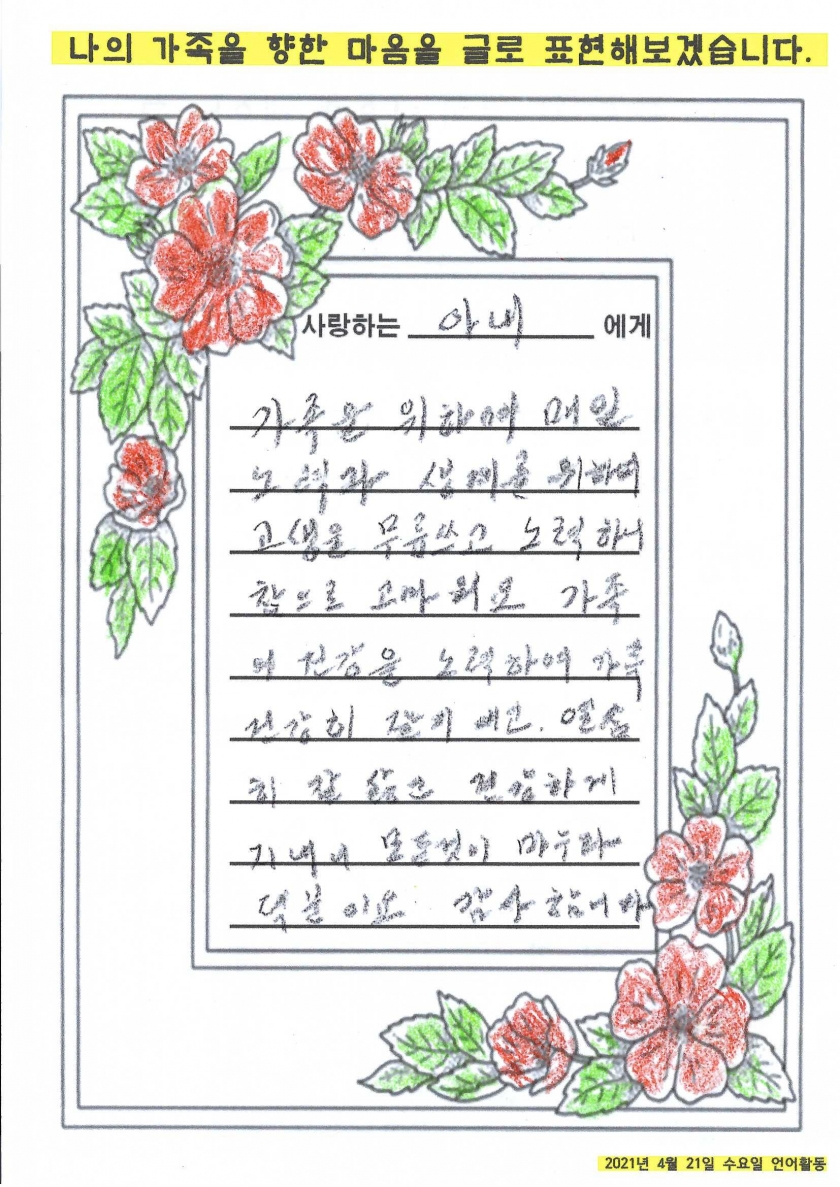 나의 가족을 향한 마음을 글로 표현해보겠습니다.
사랑하는 아내 에게
가족을 위하여 매일
노력과 생계를 위하여
고생을 무릅쓰고 노력하니
참으로 고마워요 가족
의 건강을 노력하여 가족
건강히 잘 열심
히 잘 살고 건강하게
지내니 모든것이 마누라
덕분이요 감사합니다
2021년 4월 21일 수요일 언어활동